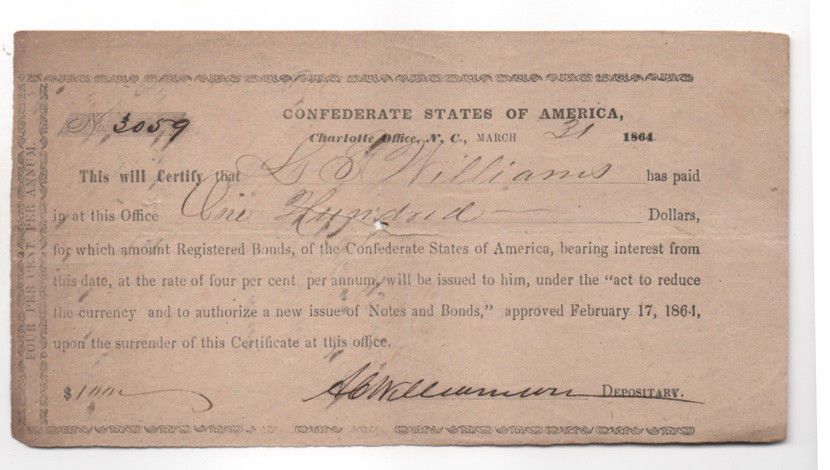 FOUR PER CENT PER ANNUM.
No. 3059
CONFEDERATE STATES OF AMERICA,
Charlotte Office, N. C., MARCH 31 1864.
This will Certify that L S Williams has paid
in at this Office One Hundred Dollars,
for which amount Registered Bonds, of the Confederate States of America, bearing interest from
this date, at the rate of four per cent per annum, will be issued to him, under the "act to reduce
the currency and to authorize a new issue of Notes and Bonds," approved February 17, 1864,
upon the surrender of this Certificate at this office.
$100 Williamson DEPOSITARY.